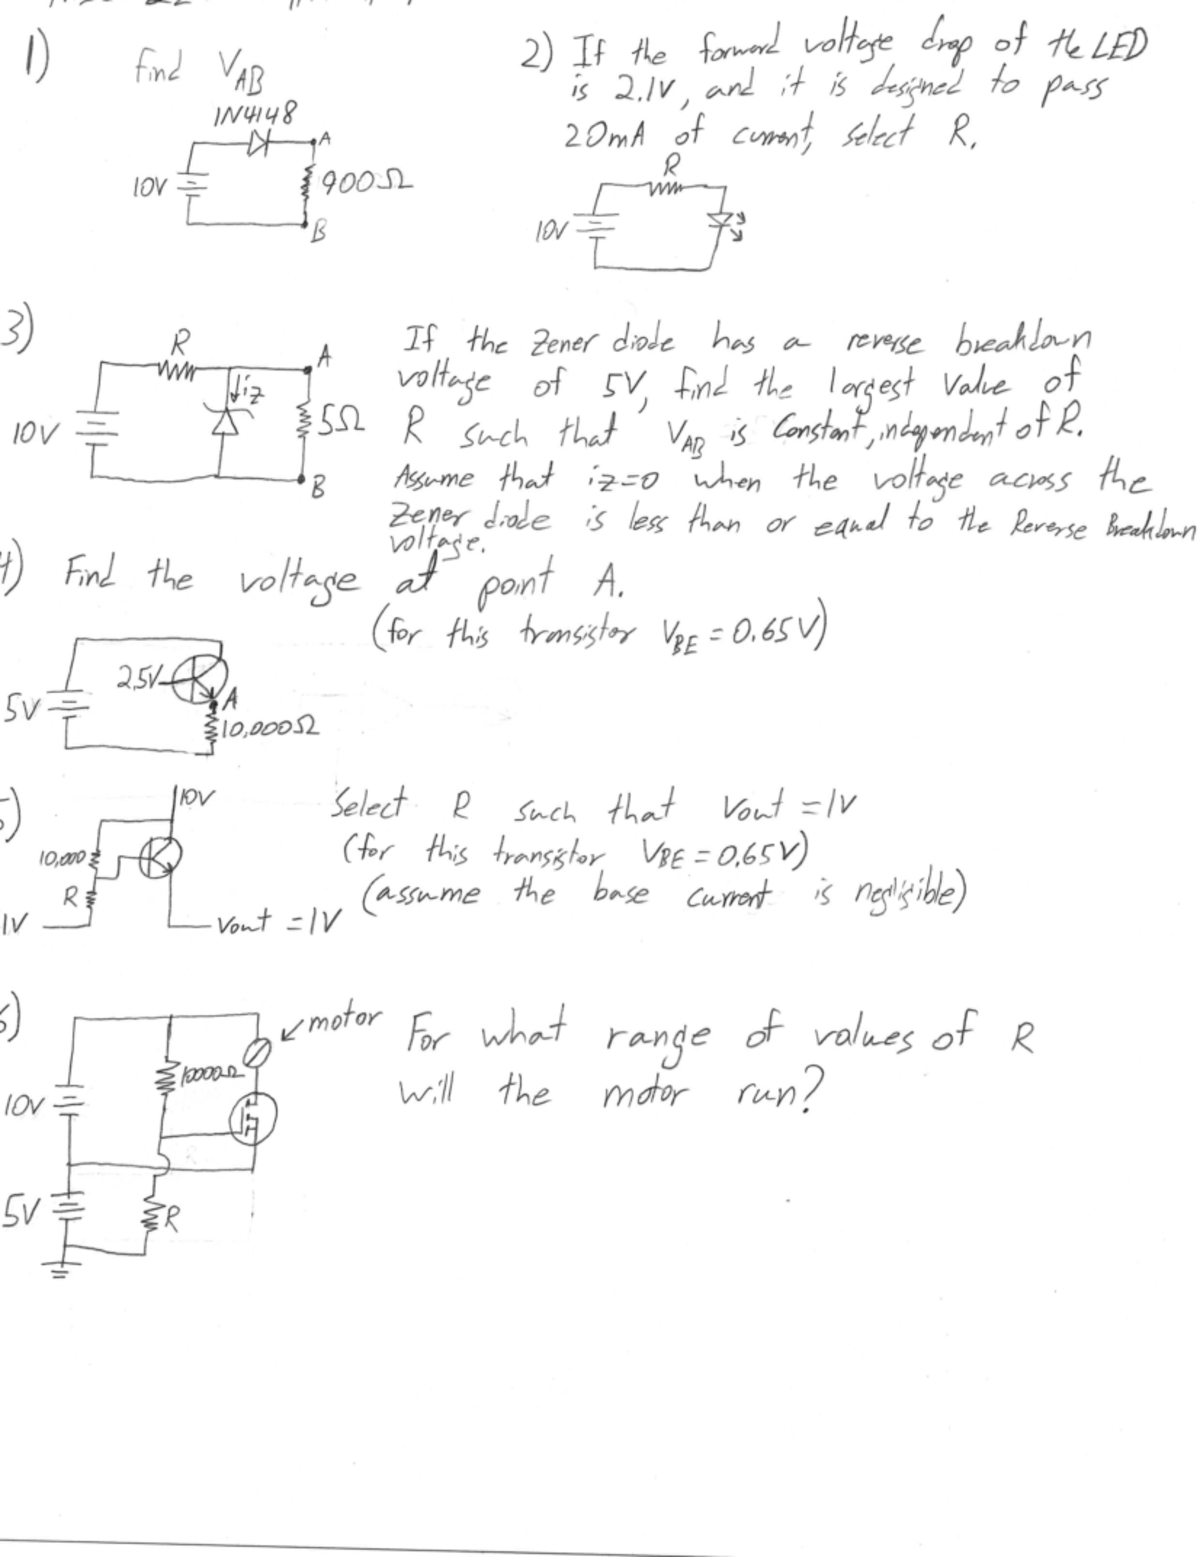 1) find VAB
1N4148
A
10V
900Ω
B
2) If the forward voltage drop of the LED
is 2.1V, and it is designed to pass
20mA of current, select R.
R
10V
3)
R
A
iz
10V
5Ω
B
If the Zener diode has a reverse breakdown
voltage of 5V, find the largest value of
R such that VAB is Constant, independent of R.
Assume that iz=0 when the voltage across the
Zener diode is less than or equal to the Reverse Breakdown
voltage.
4) Find the voltage at point A.
(for this transistor VBE = 0.65V)
2.5V
5V
A
10,000Ω
5)
10V
10,000
R
1V
Vout = 1V
Select R such that Vout = 1V
(for this transistor VBE = 0.65V)
(assume the base current is negligible)
6)
motor
10000Ω
10V
5V
R
For what range of values of R
will the motor run?